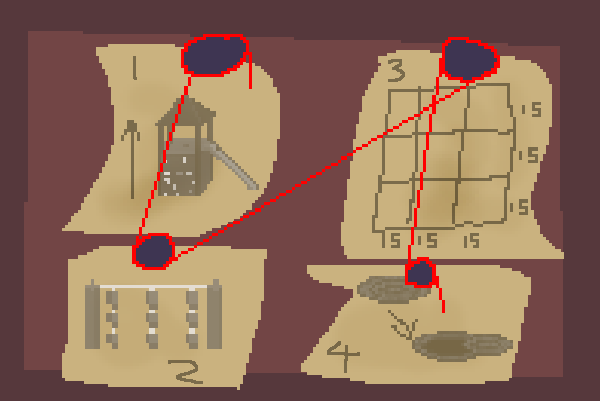 1
3
15
15
15
15 15 15
2
4